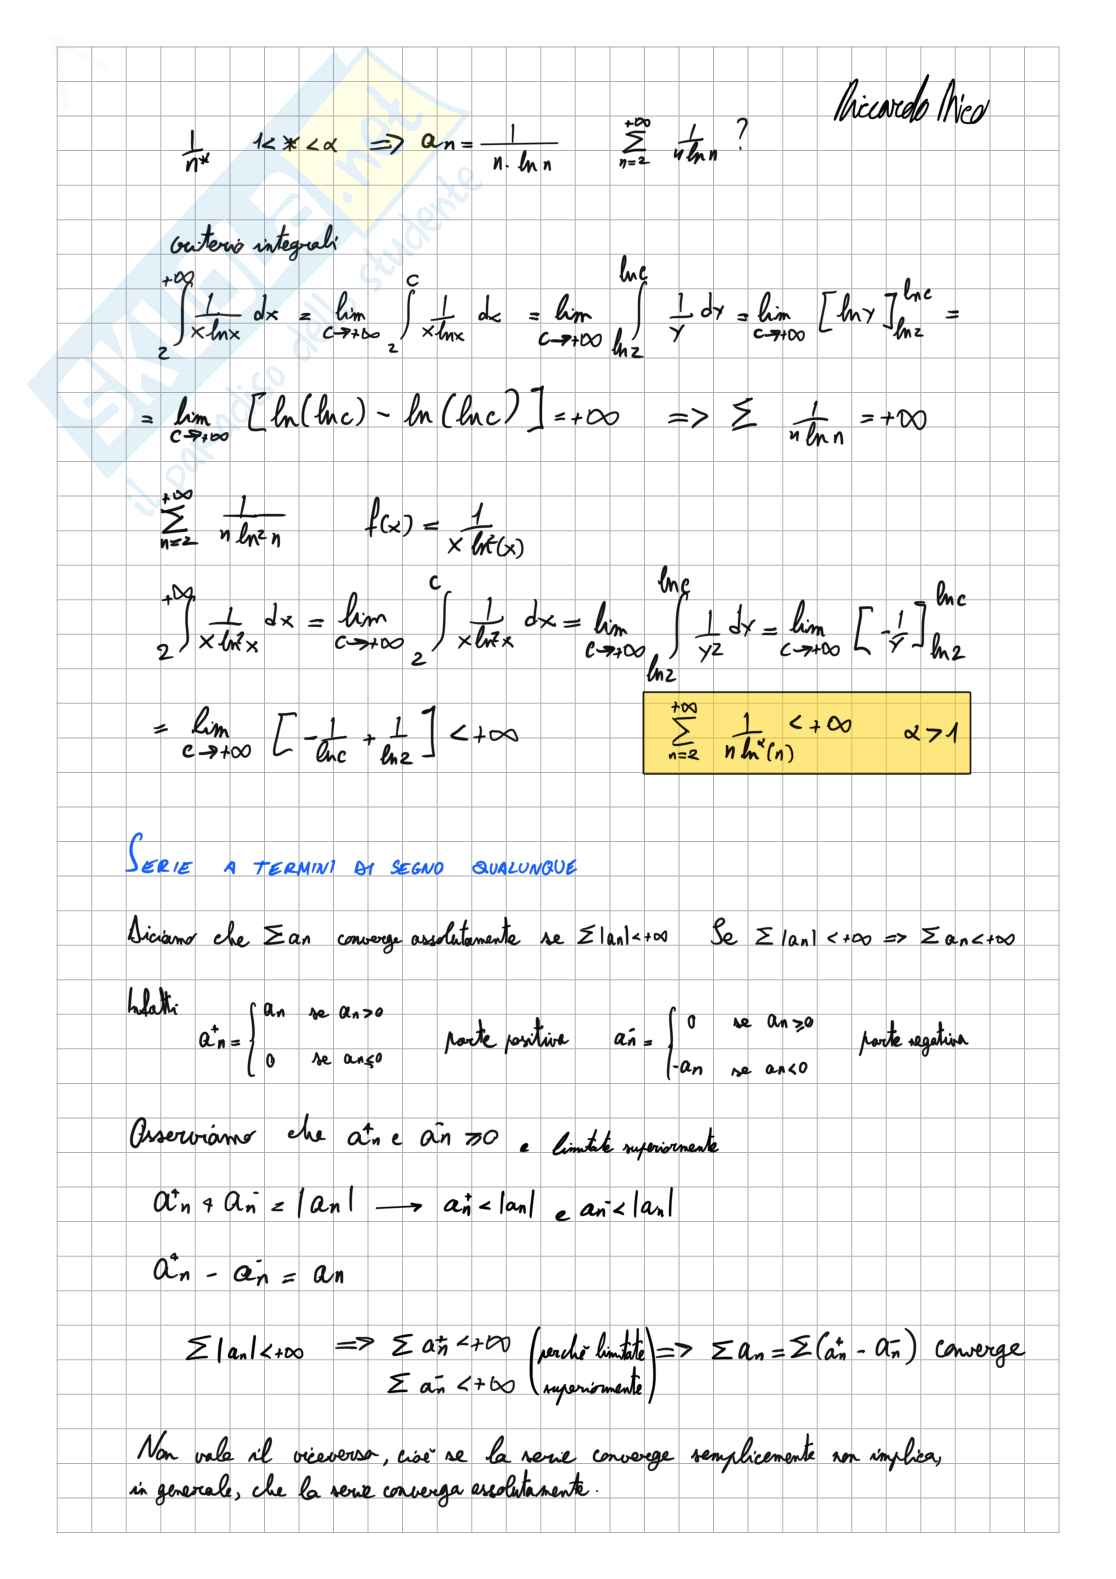 Riccardo Nico
1/n^* 1<*<α => an = 1/(n·ln n) Σ_{n=2}^{+∞} 1/(n ln n) ?
Criterio integrali
∫_2^{+∞} 1/(x ln x) dx = lim_{c→+∞} ∫_2^c 1/(x ln x) dx = lim_{c→+∞} ∫_{ln2}^{ln c} 1/y dy = lim_{c→+∞} [ln y]_{ln2}^{ln c} =
= lim_{c→+∞} [ln(ln c) - ln(ln c)] = +∞ => Σ 1/(n ln n) = +∞
Σ_{n=2}^{+∞} 1/(n ln² n) f(x) = 1/(x ln²(x))
∫_2^{+∞} 1/(x ln² x) dx = lim_{c→+∞} ∫_2^c 1/(x ln² x) dx = lim_{c→+∞} ∫_{ln2}^{ln c} 1/y² dy = lim_{c→+∞} [-1/y]_{ln2}^{ln c}
= lim_{c→+∞} [-1/ln c + 1/ln 2] < +∞
Σ_{n=2}^{+∞} 1/(n ln^α(n)) < +∞ α>1
SERIE A TERMINI DI SEGNO QUALUNQUE
Diciamo che Σ an converge assolutamente se Σ|an|<+∞ Se Σ|an| <+∞ => Σ an<+∞
Infatti
a⁺n = { an se an>0 ; 0 se an≤0 parte positiva a⁻n = { 0 se an≥0 ; -an se an<0 parte negativa
Osserviamo che a⁺n e a⁻n ≥0 e limitate superiormente
a⁺n + a⁻n = |an| → a⁺n < |an| e a⁻n < |an|
a⁺n - a⁻n = an
Σ|an|<+∞ => Σ a⁺n <+∞ (perché limitate => Σ an = Σ(a⁺n - a⁻n) converge
Σ a⁻n <+∞ superiormente)
Non vale il viceversa, cioè se la serie converge semplicemente non implica,
in generale, che la serie converga assolutamente.
SKUOLA.net
il paradiso dello studente